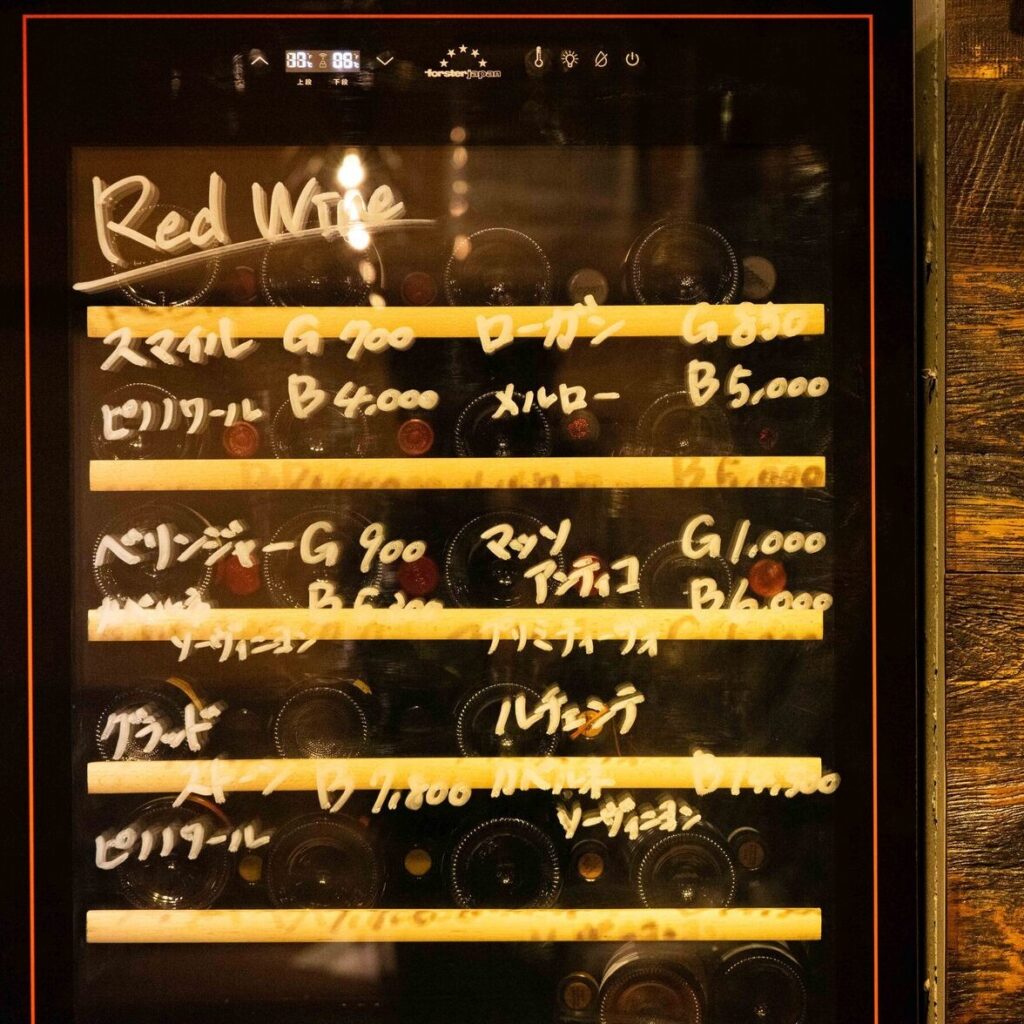 上段 下段
forsterjapan
Red Wine
スマイル G 700
ピノノワール B 4,000
ローガン G 850
メルロー B 5,000
ベリンジャー G 900
カベルネ
ソーヴィニヨン
マッソ G 1,000
アンティコ
B 6,000
プリミティーヴォ
グラッド
ストーン B 7,800
ピノノワール
ルチェンテ
カベルネ
ソーヴィニヨン